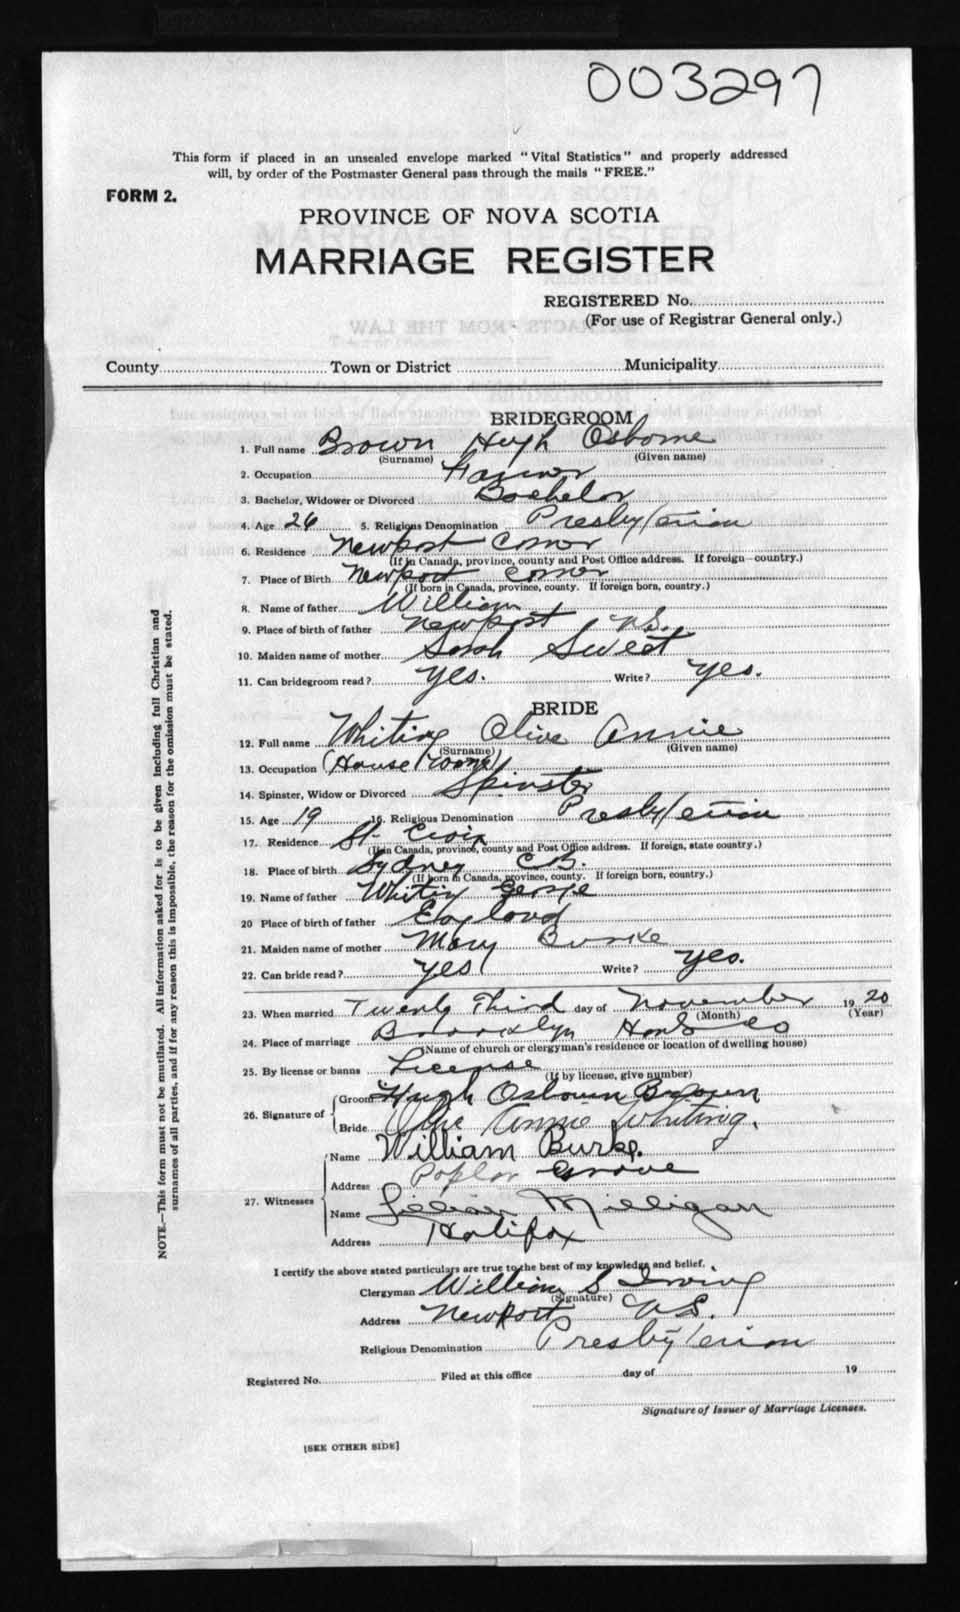 003297
This form if placed in an unsealed envelope marked "Vital Statistics" and properly addressed
will, by order of the Postmaster General pass through the mails "FREE."
FORM 2.
PROVINCE OF NOVA SCOTIA
MARRIAGE REGISTER
REGISTERED No.
(For use of Registrar General only.)
County Town or District Municipality
BRIDEGROOM
1. Full name Brown Hugh Osborne
(Surname) (Given name)
2. Occupation Farmer
3. Bachelor, Widower or Divorced Bachelor
4. Age 26 5. Religious Denomination Presbyterian
6. Residence Newport Corner
(If in Canada, province, county and Post Office address. If foreign—country.)
7. Place of Birth Newport Corner
(If born in Canada, province, county. If foreign born, country.)
8. Name of father William
9. Place of birth of father Newport N.S.
10. Maiden name of mother Sarah Sweet
11. Can bridegroom read? Yes. Write? Yes.
BRIDE
12. Full name Whiting Olive Annie
(Surname) (Given name)
13. Occupation (House work)
14. Spinster, Widow or Divorced Spinster
15. Age 19 16. Religious Denomination Presbyterian
17. Residence St. Croix
(If in Canada, province, county and Post Office address. If foreign, state country.)
18. Place of birth Sydney C.B.
(If born in Canada, province, county. If foreign born, country.)
19. Name of father Whiting George
20 Place of birth of father England
21. Maiden name of mother Mary Burke
22. Can bride read? Yes Write? Yes.
23. When married Twenty Third day of November 1920
(Month) (Year)
24. Place of marriage Brooklyn Hants Co
(Name of church or clergyman's residence or location of dwelling house)
25. By license or banns License
(If by license, give number)
26. Signature of Groom Hugh Osbourn Brown
Bride Olive Annie Whiting.
27. Witnesses Name William Burke.
Address Poplar Grove
Name Lillian Milligan
Address Halifax
I certify the above stated particulars are true to the best of my knowledge and belief.
Clergyman William S Irving
(Signature)
Address Newport N.S.
Religious Denomination Presbyterian
Registered No. Filed at this office day of 19
Signature of Issuer of Marriage Licenses.
[SEE OTHER SIDE]
NOTE.—This form must not be mutilated. All information asked for is to be given including full Christian and
surnames of all parties, and if for any reason this is impossible, the reason for the omission must be stated.